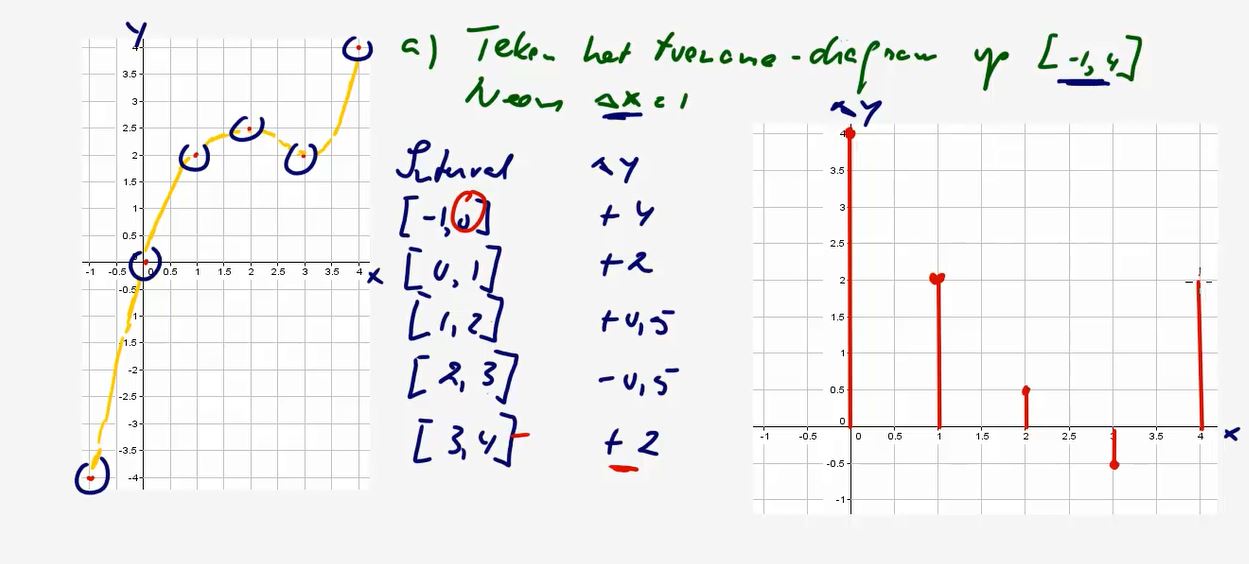 a) Teken het toename-diagram op [-1,4]
Neem Δx = 1
Interval Δy
[-1,0] +4
[0,1] +2
[1,2] +0,5
[2,3] -0,5
[3,4] +2
y
4
3.5
3
2.5
2
1.5
0.5
-1 -0.5 0 0.5 1 1.5 2 2.5 3 3.5 4 x
-0.5
-1.5
-2
-2.5
-3
-3.5
-4
Δy
4
3.5
3
2.5
2
1.5
1
0.5
0
-1 -0.5 0 0.5 1 1.5 2 2.5 3 3.5 4 x
-0.5
-1